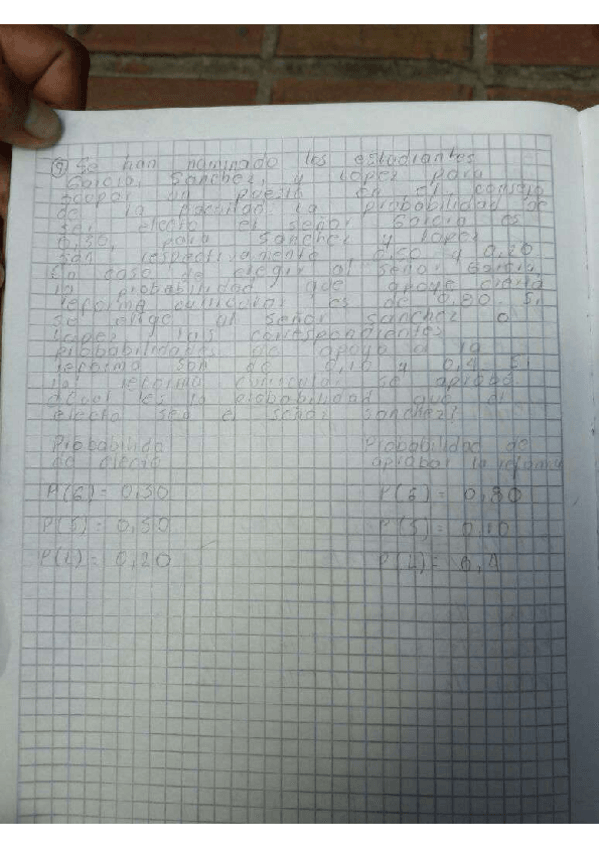 ⑨ Se han nominado los estudiantes
Garcia, Sanchez, y Lopez para
ocupar un puesto en el consejo
de la facultad la probabilidad de
ser electo el señor Garcia es
0,30, para Sanchez y Lopez
son respectivamente 0,50 y 0,20
En caso de elegir al señor Garcia,
la probabilidad que apoye cierta
reforma curricular es de 0,80. Si
se elige al señor Sanchez o
Lopez, las correspondientes
probabilidades de apoyo a la
reforma son de 0,10 y 0,4 Si
la reforma curricular se aprobo
¿cual es la probabilidad que el
electo sea el señor Sanchez?
Probabilida
de electo
Probabilidad de
aprobar la reforma
P(G)= 0,30
P(G)= 0,80
P(S)= 0,50
P(S)= 0,10
P(L)= 0,20
P(L)= 0,4